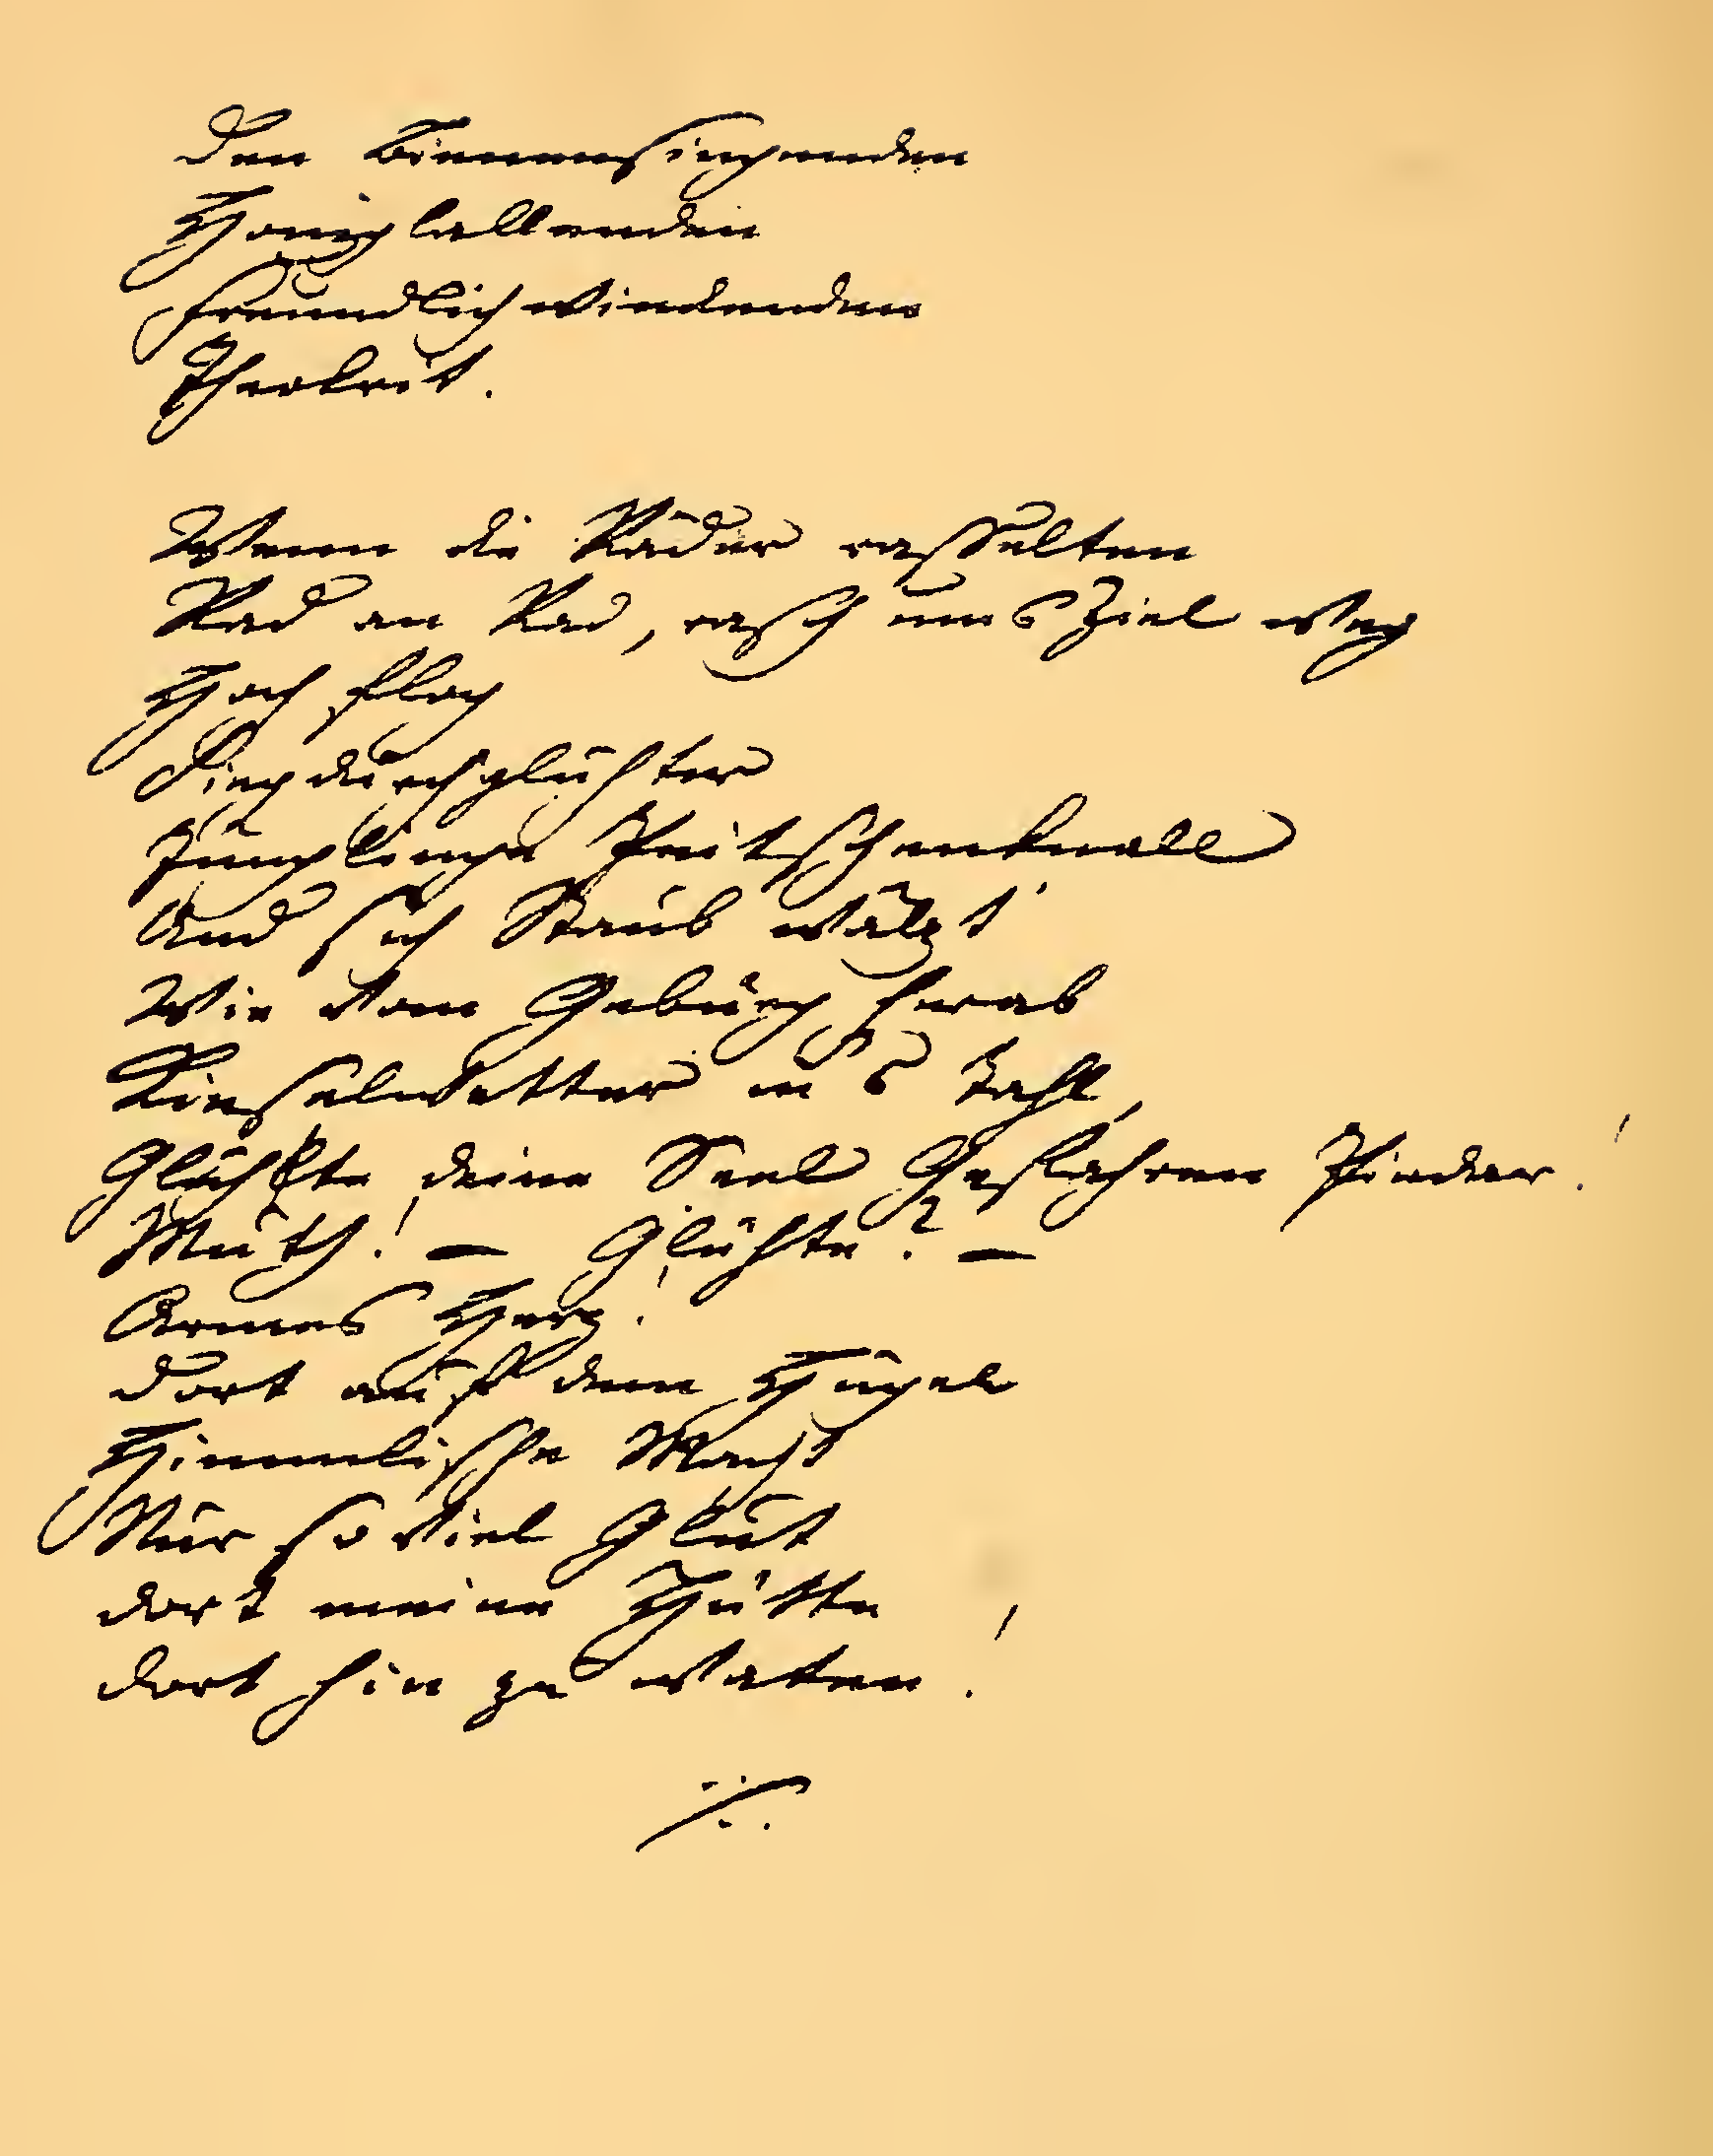 Den Bienensingenden
Honiglallenden
Freundlichwinckenden
Theokrit.
Wenn die Räder rasselten
Rad an Rad, rasch ums Ziel weg
Hoch flog
Siegdurchglühter
Jünglinge Peitschenknall
Und sich Staub wälzt'
Wie vom Gebürg herab
Kieselwetter in's Tahl,
Glühte deine Seel Gefahren Pindar!
Muth! — Glühte? —
Armes Herz!
dort auf dem Hügel
Himmlische Macht
Nur so viel Glut
dort meine Hütte
dort hin zu waten!